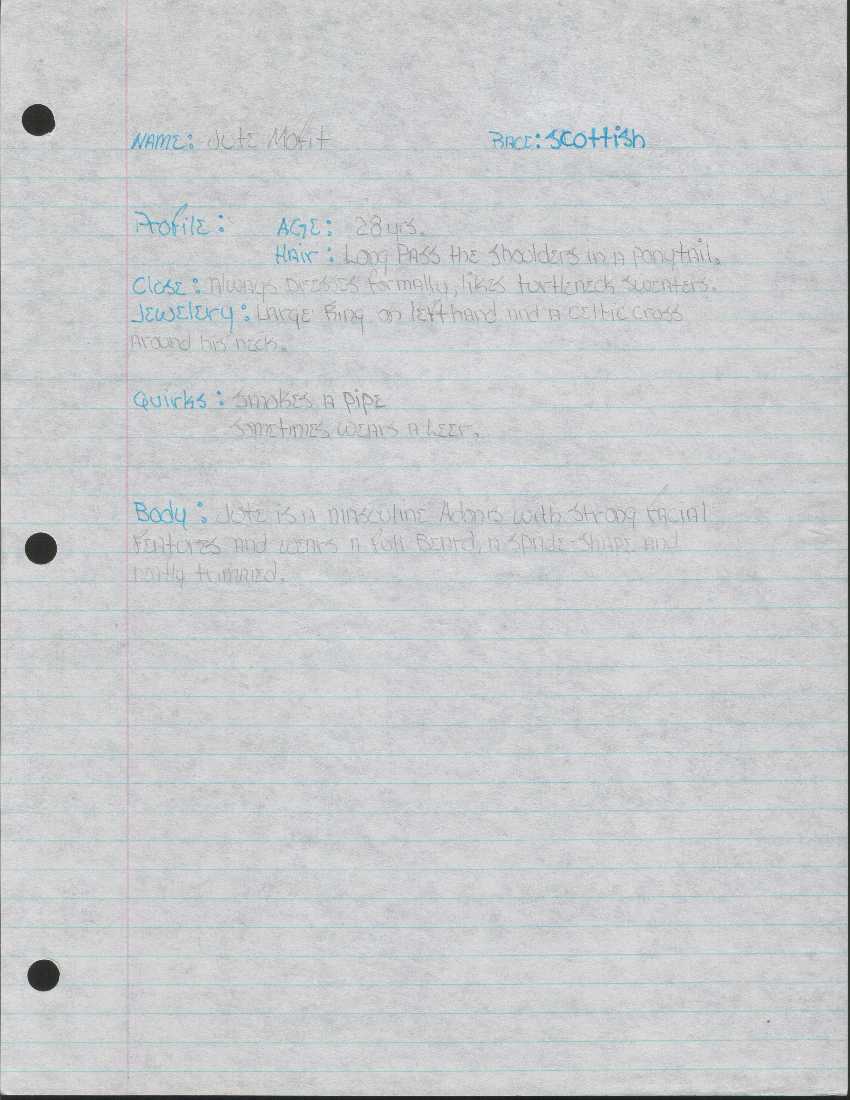 NAME: Jute Mofit RACE: Scottish
Profile: AGE: 28 yrs.
Hair: Long Pass the shoulders in a ponytail.
Close: Always Dresses formally, likes turtleneck sweaters.
Jewelery: Large Ring on left hand and a celtic cross
around his neck.
Quirks: Smokes a pipe
Sometimes wears a Leer.
Body: Jute is a masculine Adonis with strong facial
Features and wears a full Beard, a spade-shape and
neatly trimmed.